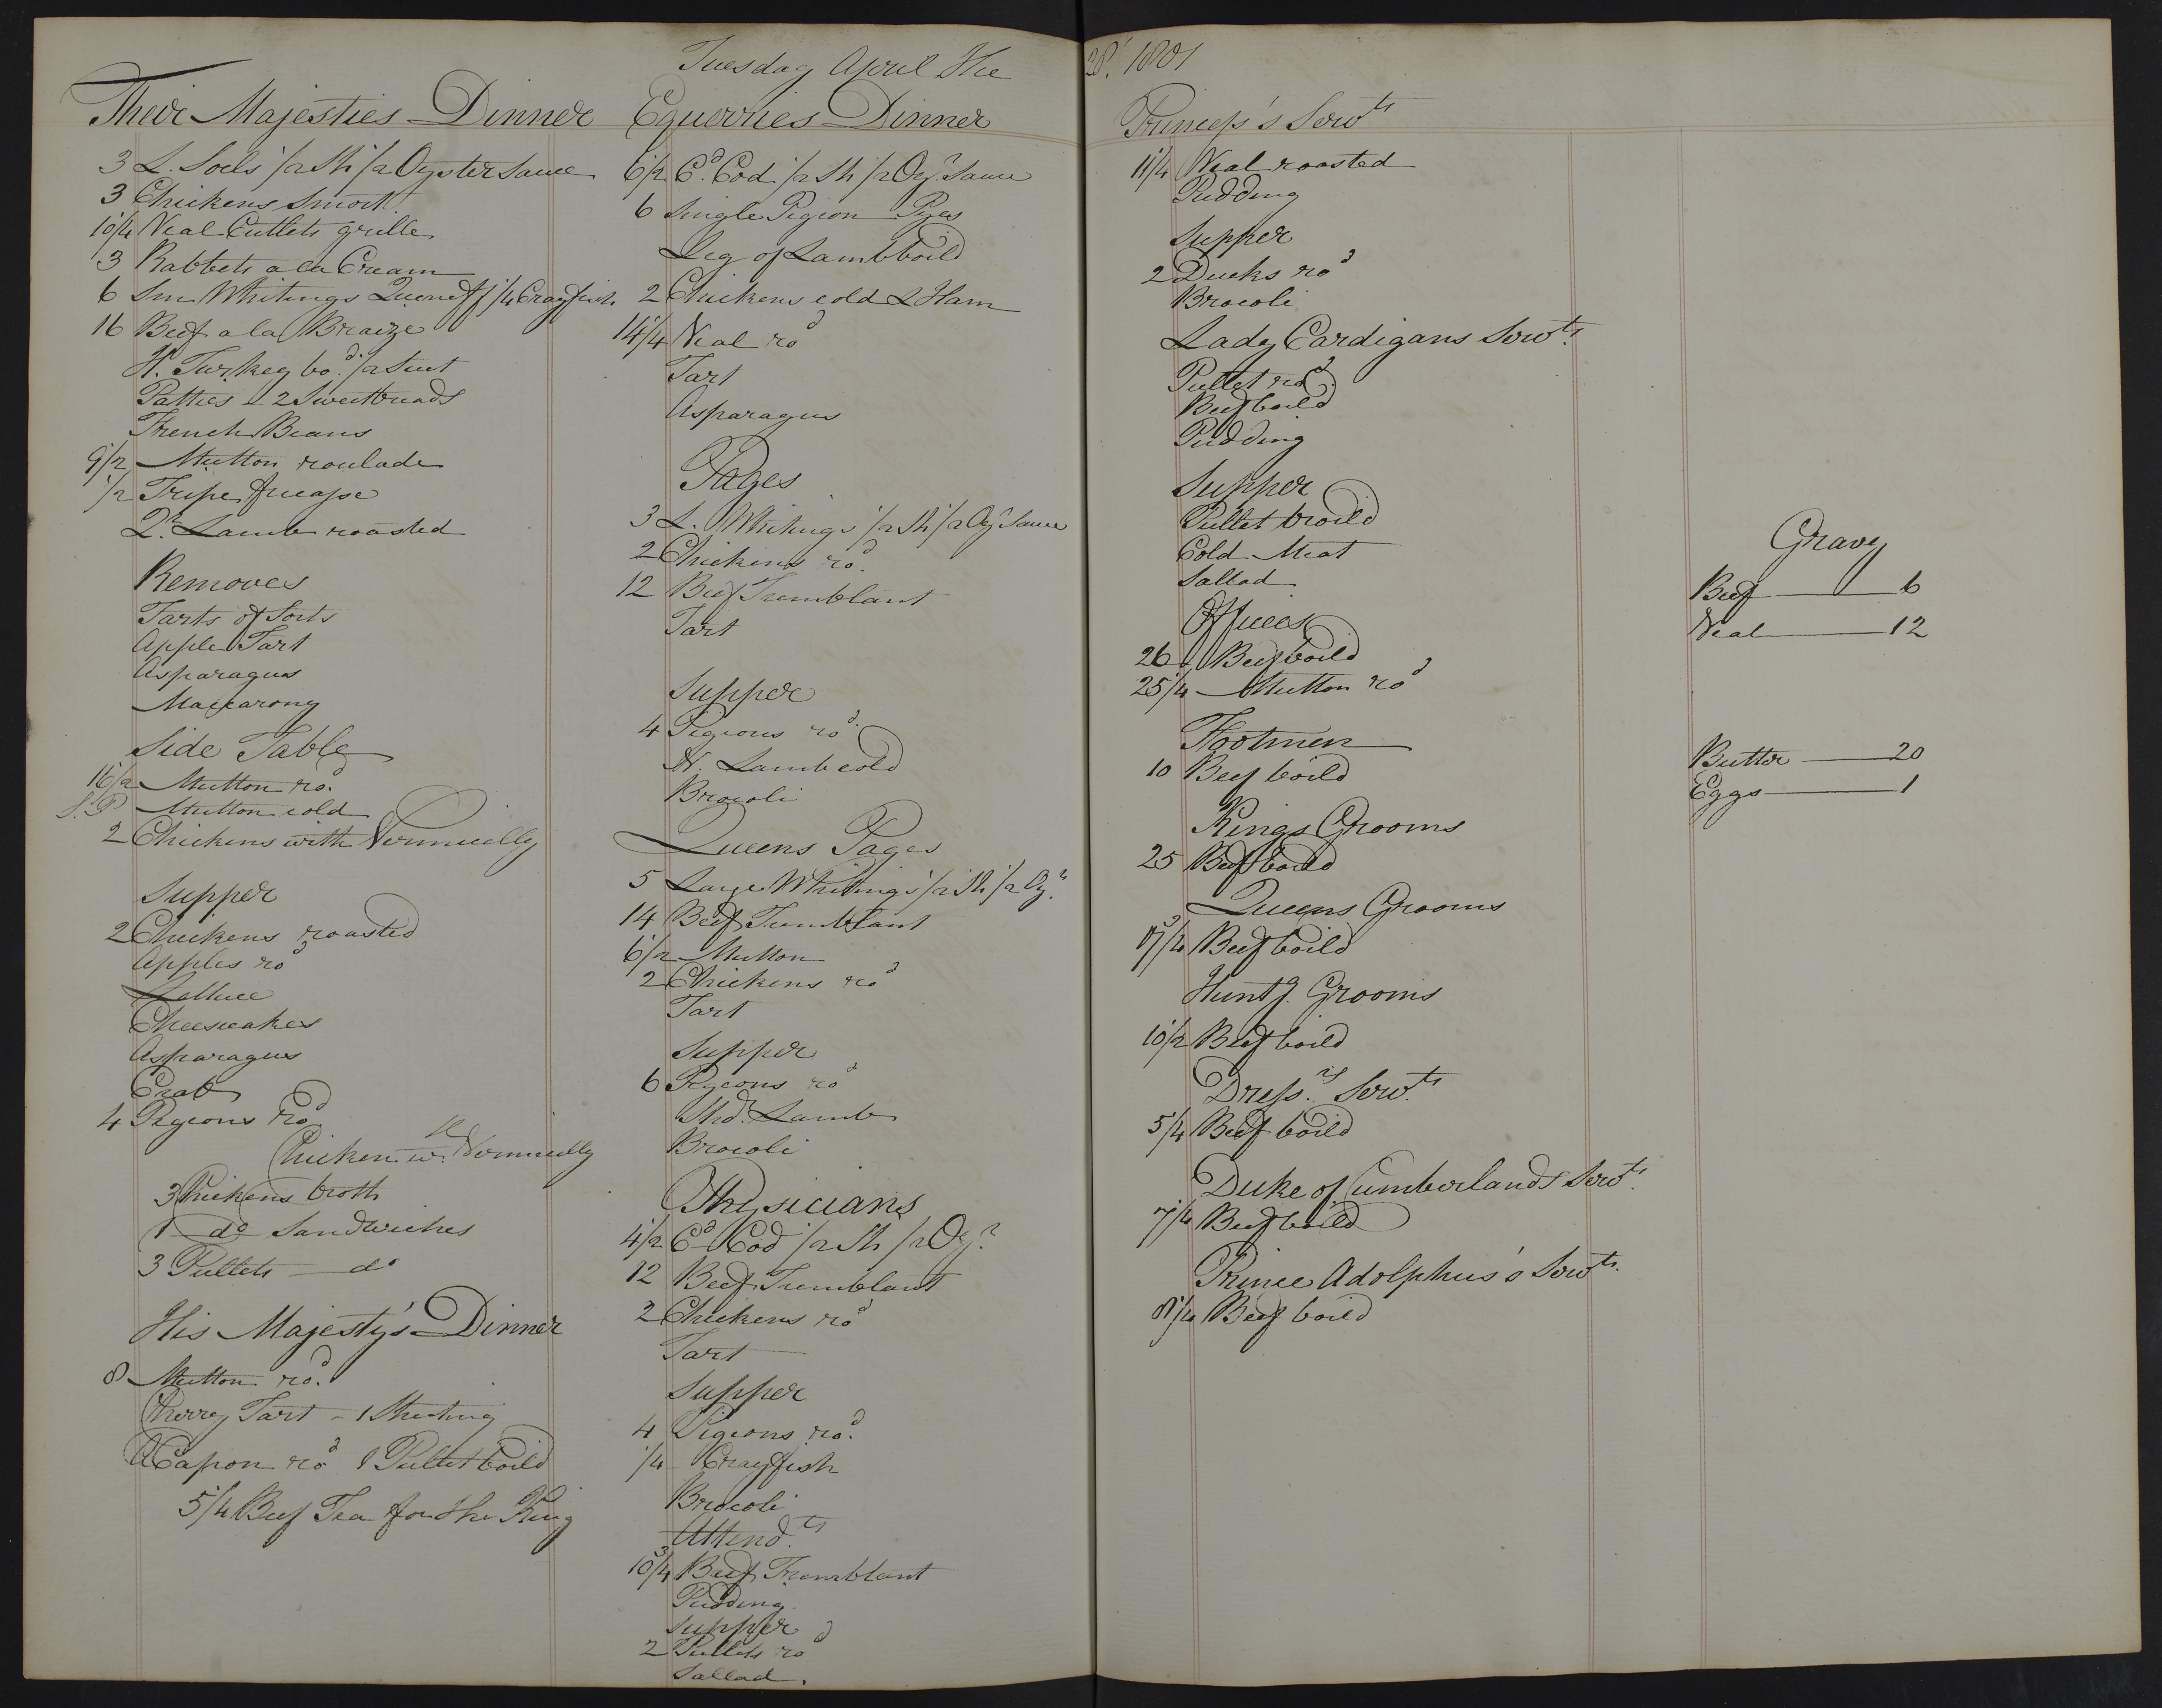 Tuesday April the 28th 1801
Their Majesties Dinner
3 L. Soels 1/2 Sh 1/2 Oyster Sauce
3 Chickens Smort
10 1/4 Veal Cutlets grille
3 Rabbets a la Cream
6 Sm Whitings 1/4 Crayfish
16 Beef a la Braize
H. Turkey bod. 1/2 Suet
Patties - 2 Sweetbreads
French Beans
9 1/2 Mutton roulade
1/2 Tripe fricasse
Qr. Lamb roasted
Removes
Tarts of Sorts
Apple Tart
Asparagus
Maccarony
Side Table
16 1/2 Mutton rod.
S.P Mutton cold
2 Chickens with Vermicelly
Supper
2 Chickens roasted
Apples rod
Lettuce
Cheesecakes
Asparagus
Crab
4 Pigeons rod
Chicken w. Vermicelly
3 Chickens broth
1 do Sandwiches
3 Pullets do
His Majesty's Dinner
8 Mutton rod.
Cherry Tart - 1
A Capon rod 1 Pullet boild
5 1/4 Beef Tea for the King
Equerries Dinner
6 1/2 Cd. Cod 1/2 Sh 1/2 Oyr Sauce
6 Single Pigion Pyes
Leg of Lamb boild
2 Chickens cold & Ham
14 1/4 Veal rod
Tart
Asparagus
Pages
3 L. Whitings 1/2 Sh 1/2 Oyr Sauce
2 Chickens rod.
12 Beef Tremblant
Tart
Supper
4 Pigeons rod.
H. Lamb cold
Brocoli
Queens Pages
5 Large Whitings 1/2 Sh 1/2 Oyr.
14 Beef Tremblant
6 1/2 Mutton
2 Chickens rod
Tart
Supper
6 Pigeons rod
Shd. Lamb
Brocoli
Physicians
4 1/2 Cd Cod 1/2 Sh 1/2 Oyr.
12 Beef Tremblant
2 Chickens rod
Tart
Supper
4 Pigeons rod.
1/4 Crayfish
Brocoli
Attend.ts
10 3/4 Beef Tremblant
Pudding
Supper
2 Pullets rod
Sallad.
Princess's Servts
11 1/4 Veal roasted
Pudding
Supper
2 Ducks rod
Brocoli
Lady Cardigans Servts.
Pullet rod.
Beef boild
Pudding
Supper
Pullet broild
Cold Meat
Sallad
Offices
26 Beef boild
25 1/4 Mutton rod
Footmen
10 Beef boild
Kings Grooms
25 Beef boild
Queens Grooms
17 3/4 Beef boild
Huntg. Grooms
10 1/2 Beef boild
Dress.rs Servts.
5 1/4 Beef boild
Duke of Cumberlands Servts.
7 1/4 Beef boild
Prince Adolphus's Servts.
8 1/4 Beef boild
Gravy
Beef 6
Veal 12
Butter 20
Eggs 1